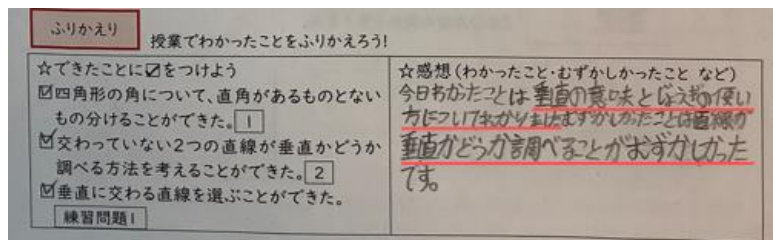 ふりかえり
授業でわかったことをふりかえろう!
☆できたことに☑をつけよう
☑四角形の角について、直角があるものとない
もの分けることができた。1
☑交わっていない2つの直線が垂直かどうか
調べる方法を考えることができた。2
☑垂直に交わる直線を選ぶことができた。
練習問題1
☆感想(わかったこと・むずかしかったこと など)
今日わかったことは垂直の意味とじょうぎの使い
方についてわかりましたむずかしかったことは直線が
垂直かどうか調べることがむずかしかった
です。